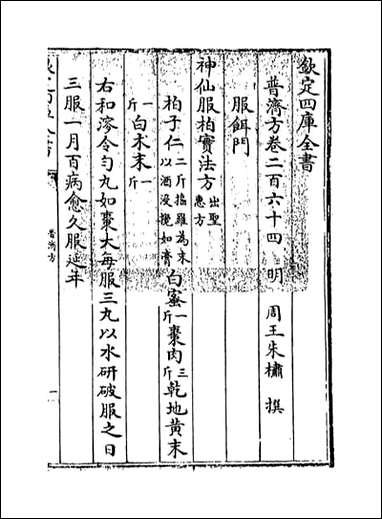 欽定四庫全書
普濟方卷二百六十四 明 周王朱橚 撰
服餌門
神仙服柏實法方 出聖惠方
柏子仁 二斤搗羅為末以酒浸攪如膏 白蜜 一斤 棗肉 三斤 乾地黄末
一斤 白术末 一斤
右和溶令匀丸如棗大每服三丸以水研破服之日
三服一月百病愈久服延年
普濟方
一